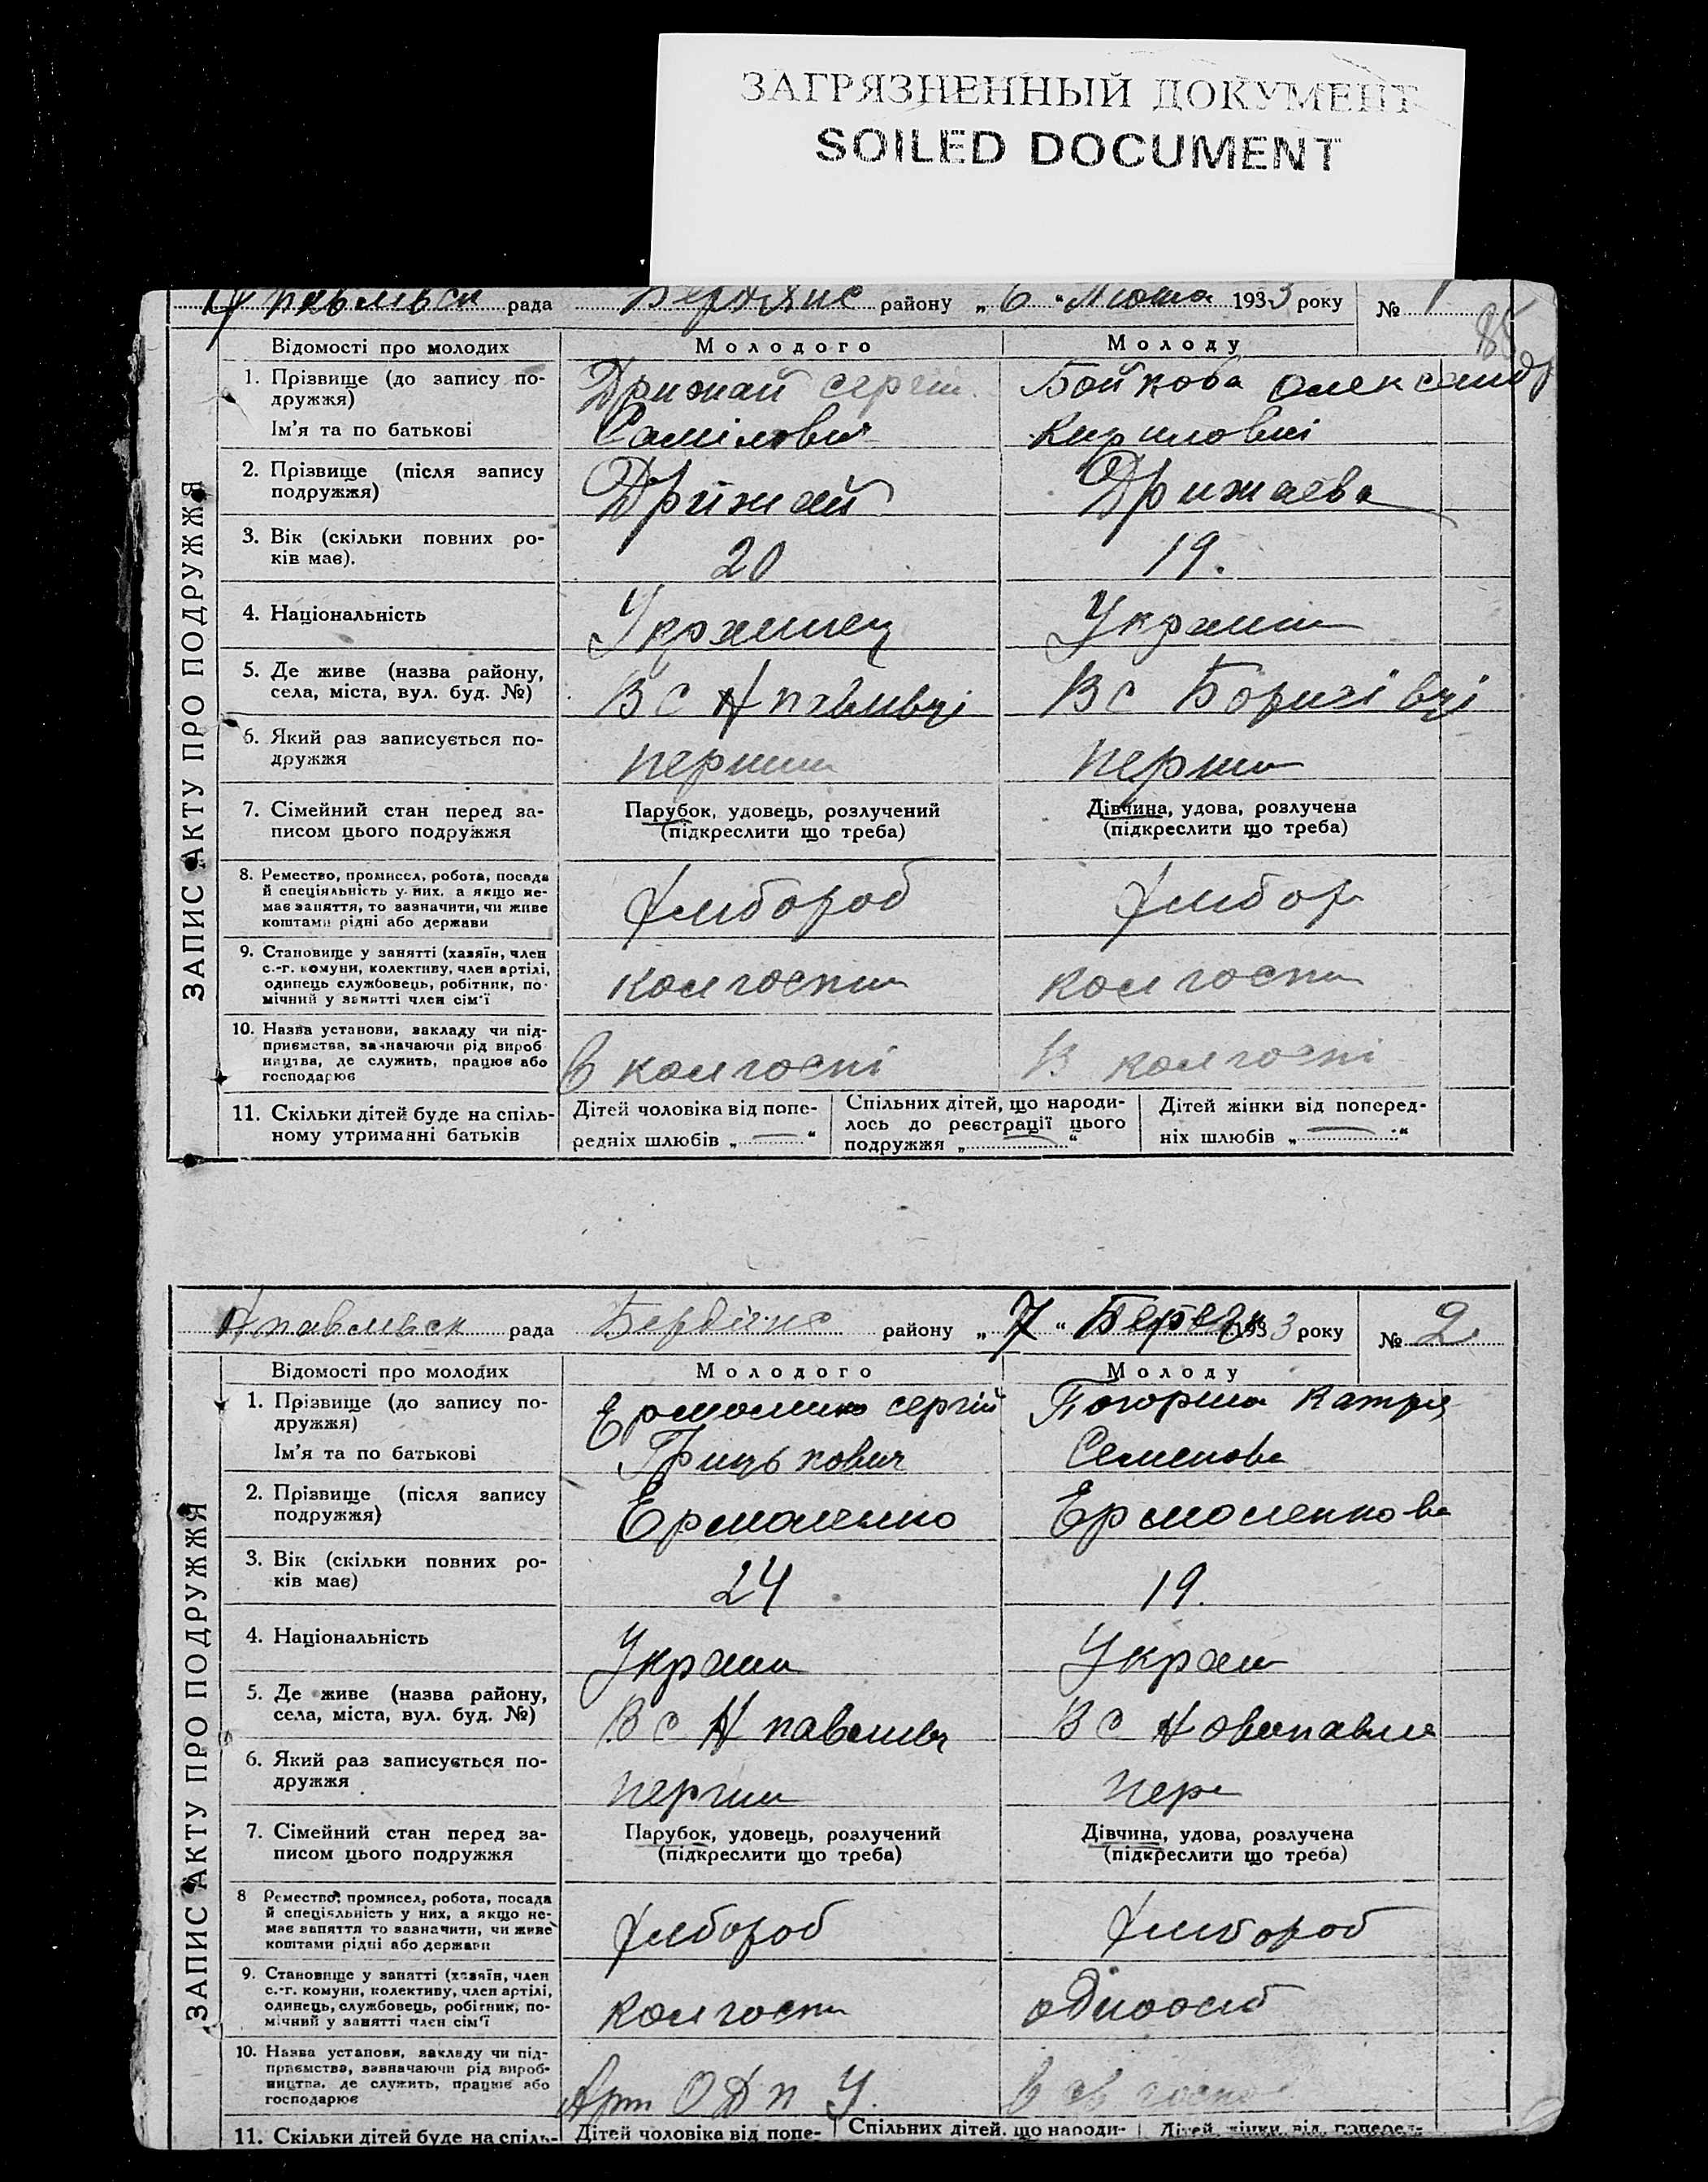 ЗАГРЯЗНЕННЫЙ ДОКУМЕНТ
SOILED DOCUMENT
рада району „ 6 “ Лютого 1933 року № 1
85
ЗАПИС АКТУ ПРО ПОДРУЖЖЯ
Відомості про молодих Молодого Молоду
1. Прізвище (до запису по- Дрижай сергій Бойкова Олександр
дружжя)
Ім'я та по батькові Самілович Кириловні
2. Прізвище (після запису Дрижай Дрижаева
подружжя)
3. Вік (скільки повних ро- 20 19.
ків має).
4. Національність Украинец Украин
5. Де живе (назва району, В с Н павлівці В с
села, міста, вул. буд. №)
6. Який раз записується по- перший перши
дружжя
7. Сімейний стан перед за- Парубок, удовець, розлучений Дівчина, удова, розлучена
писом цього подружжя (підкреслити що треба) (підкреслити що треба)
8. Ремество, промисел, робота, посада хлібороб хлібор
й спеціяльність у них, а якщо не-
має заняття, то зазначити, чи живе
коштами рідні або держави
9. Становище у занятті (хазяїн, член колгоспн колгоспн
с.-г. комуни, колективу, член артілі,
одинець службовець, робітник, по-
мічний у занятті член сім'ї
10. Назва установи, закладу чи під- в колгоспі В колгоспі
приємства, зазначаючи рід вироб
ництва, де служить, працює або
господарює
11. Скільки дітей буде на спіль- Дітей чоловіка від попе- Спільних дітей, що народи- Дітей жінки від поперед-
ному утриманні батьків редніх шлюбів „ — “ лось до реєстрації цього ніх шлюбів „ — “
подружжя „ — “
Нпавлівск рада району „ 7 “ Березн 1933 року № 2
ЗАПИС АКТУ ПРО ПОДРУЖЖЯ
Відомості про молодих Молодого Молоду
1. Прізвище (до запису по- Ермоленко сергій Катря
дружжя)
Ім'я та по батькові Грицькович Семенова
2. Прізвище (після запису Ермоленко Ермоленкова
подружжя)
3. Вік (скільки повних ро- 24 19.
ків має)
4. Національність Украин Украин
5. Де живе (назва району, В с Н павлівц В с Новопавлів
села, міста, вул. буд. №)
6. Який раз записується по- перши пер
дружжя
7. Сімейний стан перед за- Парубок, удовець, розлучений Дівчина, удова, розлучена
писом цього подружжя (підкреслити що треба) (підкреслити що треба)
8 Ремество, промисел, робота, посада хлібороб хлібороб
й спеціяльність у них, а якщо не-
має заняття то зазначити, чи живе
коштами рідні або держави
9. Становище у занятті (хазяїн, член колгоспн одноосіб
с.-г. комуни, колективу, член артілі,
одинець, службовець, робітник, по-
мічний у занятті член сім'ї
10. Назва установи, закладу чи під- Арт ОДПУ
приємства, зазначаючи рід вироб-
ництва, де служить, працює або
господарює
11. Скільки дітей буде на спіль- Дітей чоловіка від попе- Спільних дітей, що народи- Дітей жінки від поперед-